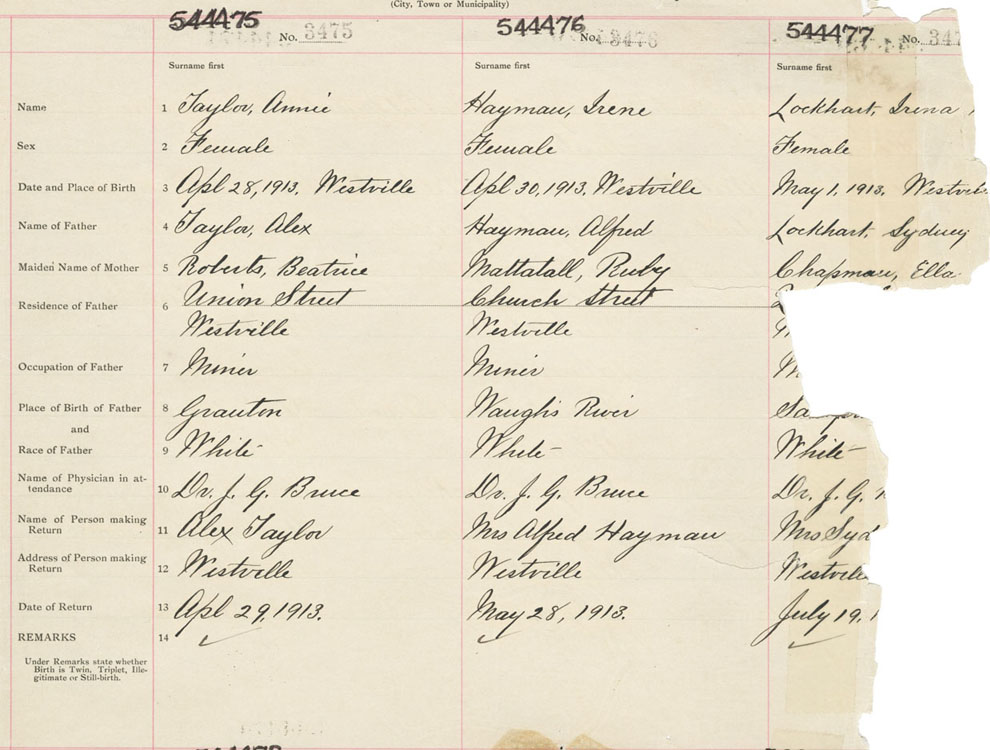 (City, Town or Municipality)
544475 No. 3475 544476 No. 3476 544477 No. 347
Surname first Surname first Surname first
Name 1 Taylor, Annie Hayman, Irene Lockhart, Irena
Sex 2 Female Female Female
Date and Place of Birth 3 Apl 28, 1913. Westville Apl 30, 1913. Westville May 1, 1913. Westvil
Name of Father 4 Taylor, Alex Hayman, Alfred Lockhart, Sydney
Maiden Name of Mother 5 Roberts, Beatrice Mattatall, Ruby Chapman, Ella
Residence of Father 6 Union Street Church Street
Westville Westville
Occupation of Father 7 Miner Miner
Place of Birth of Father 8 Granton Waugh's River
and
Race of Father 9 White White White
Name of Physician in at-
tendance 10 Dr. J. G. Bruce Dr. J. G. Bruce Dr. J. G.
Name of Person making
Return 11 Alex Taylor Mrs Alfred Hayman Mrs Syd
Address of Person making
Return 12 Westville Westville Westville
Date of Return 13 Apl 29, 1913. May 28, 1913. July 19, 1
REMARKS 14
Under Remarks state whether
Birth is Twin, Triplet, Ille-
gitimate or Still-birth.